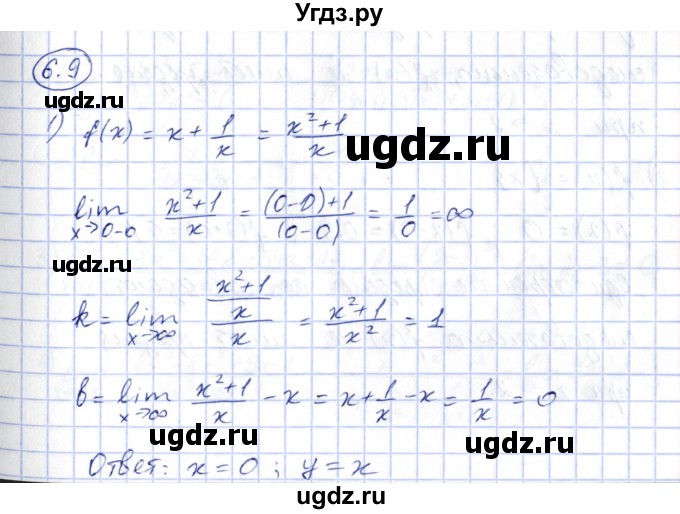 Угдз.ру
6.9
ugdz.ru
1) f(x) = x + 1/x = (x²+1)/x
ugdz.ru
lim x→0-0 (x²+1)/x = ((0-0)+1)/(0-0) = 1/0 = ∞
ugdz.ru
ugdz.ru
k = lim x→∞ ((x²+1)/x)/x = (x²+1)/x² = 1
ugdz.ru
b = lim x→∞ (x²+1)/x - x = x + 1/x - x = 1/x = 0
ugdz.ru
ugdz.ru
Ответ: x = 0 ; y = x
ugdz.ru
ugdz.ru